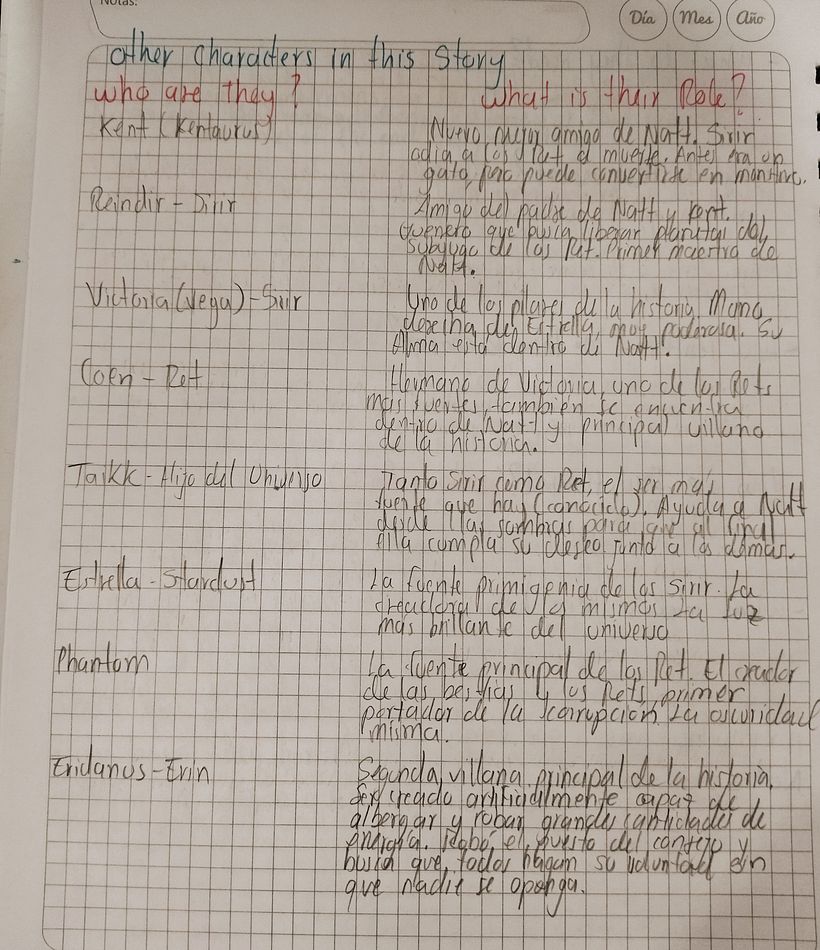 Notas:
Día Mes Año
other characters in this story
who are they? What is their Role?
Kent (Kentaurus)
Nuevo mejor amigo de Natt. Sirir
odia a los Ret a muerte. Antes era un
gato, pero puede convertirse en monstruo.
Reindir - Sirir
Amigo del padre de Natt y Kent.
Guerrero que busca liberar planetas del
subyugo de los Ret. Primer maestro de
Natt.
Victoria (Vega) - Sirir
Uno de los pilares de la historia. Mano
derecha de Estrella, muy poderosa. Su
Alma está dentro de Natt.
Coen - Ret
Hermano de Victoria, uno de los Rets
mas fuertes, también se encuentra
dentro de Natt y principal villano
de la historia.
Taikk - Hijo del Universo
Tanto Sirir como Ret, el ser mas
fuente que hay (conocido). Ayuda a Natt
desde las sombras para que al final
ella cumpla su deseo junto a los demas.
Estrella - Stardust
La fuente primigenia de los Sirir. La
creadora de la mismos La luz
mas brillante del universo
Phantom
La fuente principal de los Ret. El creador
de las bestias y los Rets, primer
portador de la corrupcion. La oscuridad
misma.
Eridanus - Erin
Segunda villana principal de la historia.
Ser creado artificialmente capaz de
albergar y robar grandes cantidades de
energia. Robó el puesto del
busca que todos hagan su voluntad sin
que nadie se oponga.